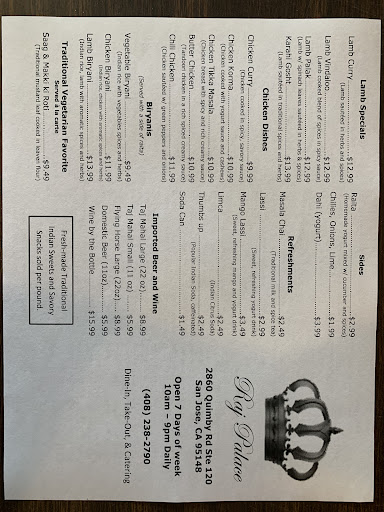 Lamb Specials
Lamb Curry............$12.99
(Lamb sautéed in herbs and spices)
Lamb Vindaloo............$12.99
(Lamb cooked blend of spices in spicy sauce)
Lamb Palak............$12.99
(Lamb w/ spinach leaves sautéed in herbs & spices)
Karahi Gosht............$13.99
(Lamb cooked in traditional spices and herbs)
Chicken Dishes
Chicken Curry............$9.99
(Chicken cooked in spicy savory sauce)
Chicken Korma............$10.99
(Chicken cooked with yogurt sauce and cashews)
Chicken Tikka Masala............$10.99
(Chicken breast with spicy and rich creamy sauce)
Butter Chicken............$10.99
(Tandoori chicken in a rich spices creamy sauce)
Chili Chicken............$11.99
(Chicken sautéed w/ green peppers and onions)
Biryanis
(Served with a side of raita)
Vegetable Biryani............$9.49
(Indian rice with vegetables spices and herbs)
Chicken Biryani............$11.99
(Indian rice, chicken with aromatic spices and herbs)
Lamb Biryani............$13.99
(Indian rice, lamb with aromatic spices and herbs)
Traditional Vegetarian Favorite
Served a la carte
Saag & Makki ki Roti............$9.49
(Traditional mustard leaf cooked in leaven flour)
Sides
Raita............$2.99
(Homemade yogurt mixed w/ cucumber and spices)
Chilies, Onions, Lime............$1.99
Dahi (yogurt)............$3.99
Refreshments
Masala Chai............$2.49
(Traditional milk and spice tea)
Lassi............$2.99
(Sweet, refreshing yogurt drink)
Mango Lassi............$3.49
(Sweet, refreshing mango and yogurt drink)
Limca............$2.49
(Indian Citrus Soda)
Thumbs up............$2.49
(Popular Indian Soda, caffeinated)
Soda Can............$1.49
Imported Beer and Wine
Taj Mahal Large (22 oz)....$8.99
Taj Mahal Small (11 oz)....$5.99
Flying Horse Large (22oz)..$9.99
Domestic Beer (11oz)......$5.99
Wine by the Bottle............$15.99
Fresh-made Traditional
Indian Sweets and Savory
Snacks sold per pound.
Raj Palace
2860 Quimby Rd Ste 120
San Jose, CA 95148
Open 7 Days of week
10am – 9pm Daily
(408) 238-2790
Dine-In, Take-Out, & Catering